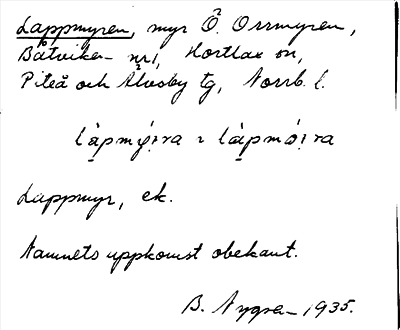 Lappmyren, myr Ö. Orrmyren,
Båtviken nr 1, Hortlax sn,
Piteå och Älvsby tg, Norrb. l.
Lappmyr, ek.
Namnets uppkomst obekant.
B. Nygren 1935.